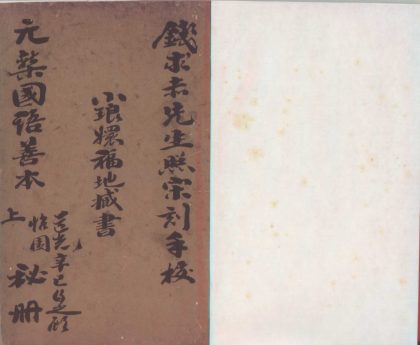 錢求赤先生照宋刻手校
小琅嬛福地藏書
元槧國語善本
上
祕冊
道光辛巳